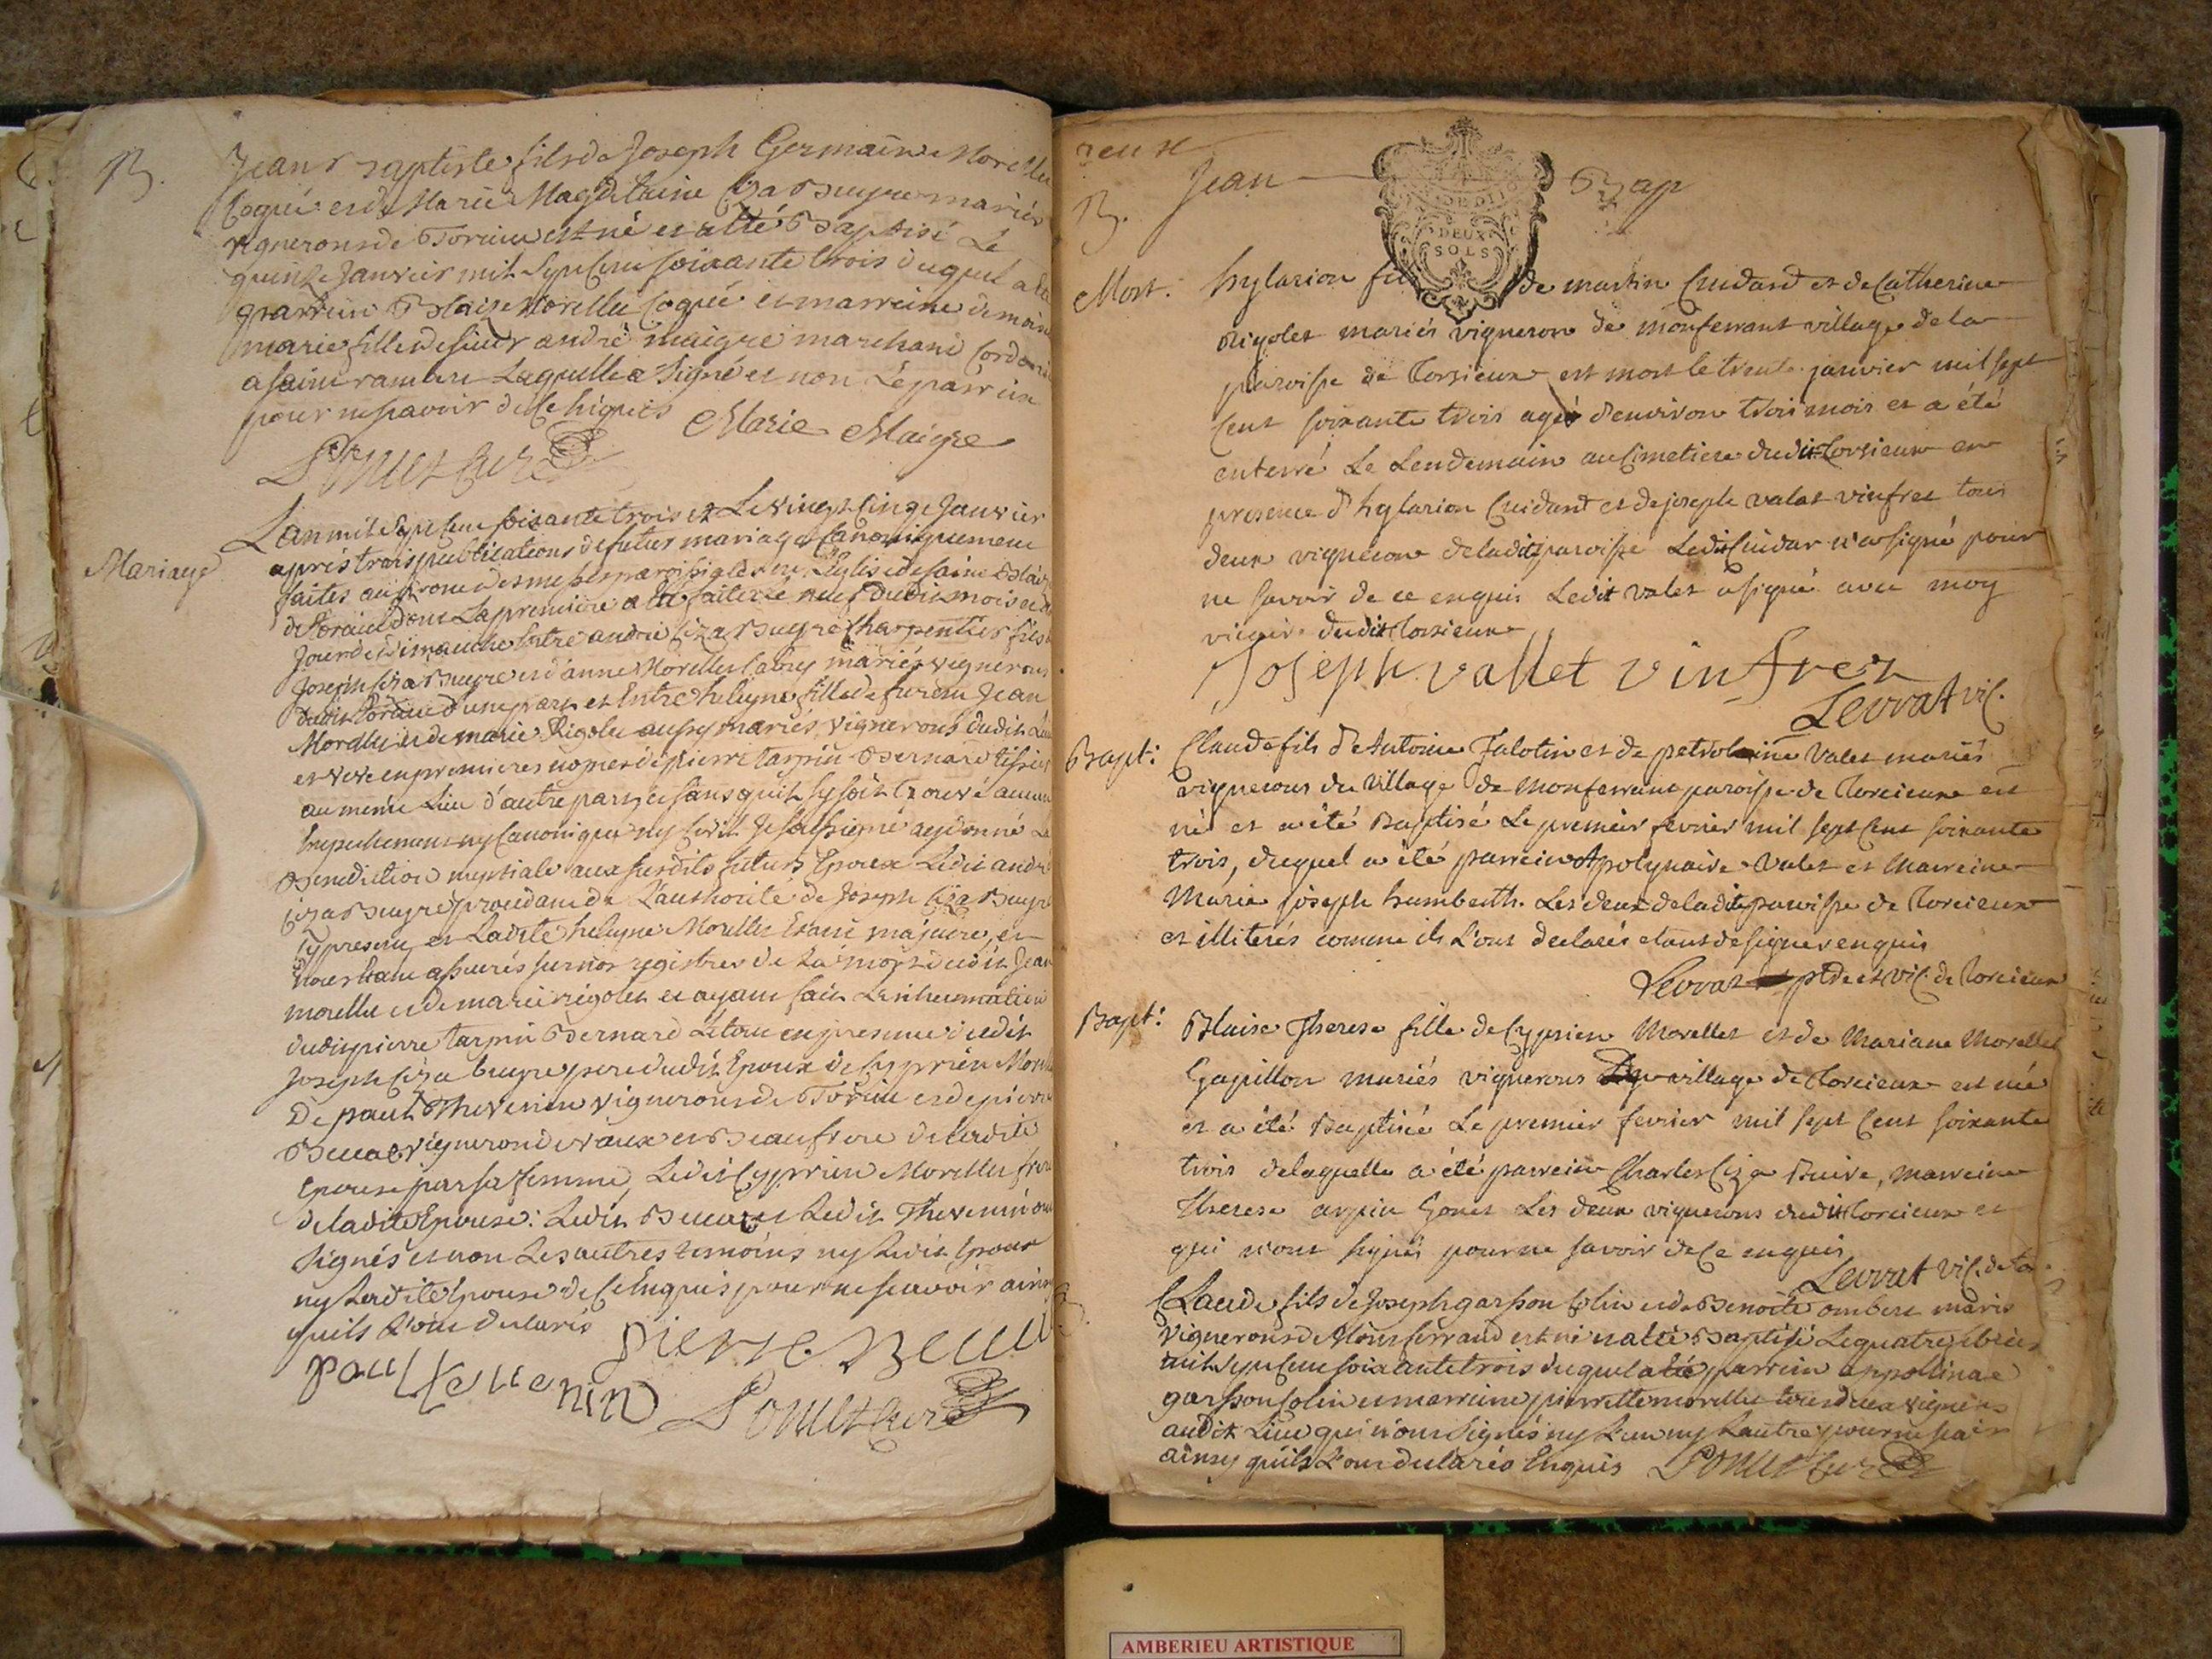 B.
Jean Baptiste fils de Joseph Germain Morellet
Coquié et de Marie Magdelaine Ciza Buyre mariés
vignerons de Torcieu est né et a été Baptisé Le
quinze Janvier mil sept cent soixante trois duquel a été
parrein Blaise Morellet Coquié et marreine demoi
marie fille de sieur andré maigre marchand Cordonn
a saint rambert Laquelle a signé et non Le parrein
pour ne scavoir de ce enquis Marie Maigre
Mariage
Lan mil sept cent soixante trois et Le vingt cinq Janvier
après trois publications de futur mariage Canoniquement
faites au prone des messes paroissiales en L'Eglise de saint Blaise
de Torcieu dont La premiere a été faite le neuf dudit mois et
Jour de dimanche Entre andré Ciza Buyre Charpentier fils
Joseph Ciza Buyre et d'anne Morellet mariés vignerons
dudit Torcieu d'une part et Entre heleyne fille de furent Jean
Morellet et de marie Rigolet aussy mariés vignerons dudit Lieu
et veve en premieres nopces de pierre tarpin Bernard
au meme Lieu d'autre part, et sans qu'il sy soit trouvé aucun
Empechement ny Canonique ny Civil Je soussigné ay donné La
Benediction nuptiale aux susdits futurs Epoux Ledit andré
Ciza Buyre procedant de L'authorité de Joseph Ciza Buyre
cy present, et Ladite heleyne Morellet Etant majeure, et
nous etant assurés sur nos registres de La mort dudit Jean
morellet et de marie rigolet et ayant fait L'inhumation
dudit pierre tarpin Bernard Le tout en presence dudit
Joseph Ciza buyre pere dudit Epoux de Cyprien Morellet
De paul Thevenin vignerons de Torcieu et de pierre
vigneron de vaux et Beaufrere de Ladite
Epouse par sa femme, Ledit Cyprien Morellet frere
de Ladite Epouse: Ledit et Ledit Thevenin ont
signés et non Les autres temoins ny Ledit Epoux
ny Ladite Epouse de ce Enquis pour ne scavoir ainsi
quils L'ont declarés pierre
paul tevenin
B.
Jean Bap
DEUX
SOLS
Mort.
hylarion fils de martin Cuidard et de Catherine
Rigolet mariés vigneron de monferrant village de la
paroisse de Torsieux est mort le trente janvier mil sept
Cent soixante trois agé d'environ trois mois et a été
enterré Le Lendemain au Cimetiere dudit Torsieux en
presence d'hylarion Cuidard et de joseph valet vinfret tous
deux vignerons de ladite paroisse Ledit Cuidar n'a signé pour
ne savoir de ce enquis Ledit valet a signé avec moy
vicaire dudit torsieux
Joseph vallet vinfrer
Levrat vic.
Bapt:
Claude fils d'Antoine Jalotin et de petrolaine Valet mariés
vignerons du village de Monferrant paroisse de Torcieux est
né et a été Baptisé Le premier fevrier mil sept Cent soixante
trois, duquel a été parrein Apolynaire Valet et Marreine
Marie joseph humberth. Les deux de ladite paroisse de Torcieux
et illiterés comme ils L'ont declarés etant de signer enquis
Levrat ptre et vic. de Torcieux
Bapt:
Blaise Therese fille de Cyprien Morellet et de Mariane Morellet
Gapillon mariés vignerons village de Torcieux est née
et a été Baptisée Le premier fevrier mil sept Cent soixante
trois de laquelle a été parrein Charles Ciza Buire, marreine
Therese arpin Gonet Les deux vignerons dudit torcieux et
qui n'ont signés pour ne savoir de Ce enquis
Levrat vic. de Tor
Claude fils de Joseph garsson Colin et de Benoite ombert mariés
vignerons de Montferrand est né et a été Baptisé Le quatre febvrier
mil sept cent soixante trois duquel a été parrein appolinae
garsson Colin et marreine pierrette morellet tous deux vignerons
audit Lieu qui n'ont signés ny L'un ny L'autre pour ne scavoir
ainsy quils L'ont declarés Enquis
AMBERIEU ARTISTIQUE